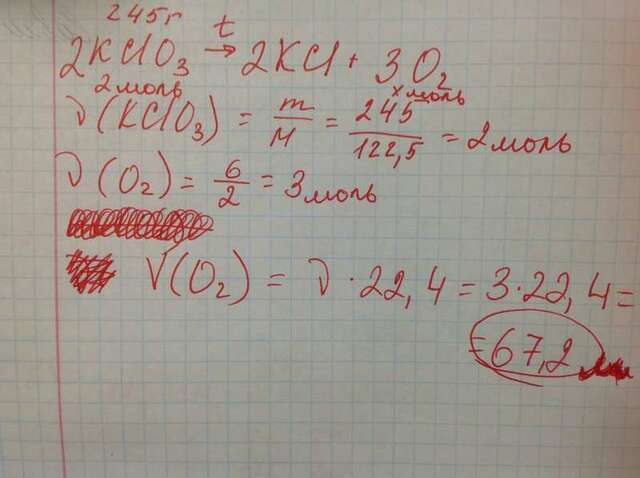 245г
2KClO₃ →t 2KCl + 3O₂
2 моль x моль
ν(KClO₃) = m/M = 245/122,5 = 2 моль
ν(O₂) = 6/2 = 3 моль
V(O₂) = ν · 22,4 = 3·22,4 =
= 67,2